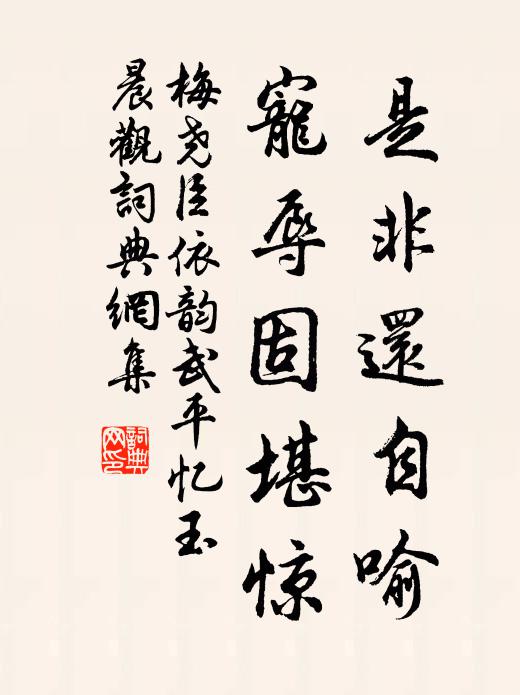 是非還自喻
寵辱固堪惊
梅尧臣依韵武平忆玉
晨觀詞典網集
詞典